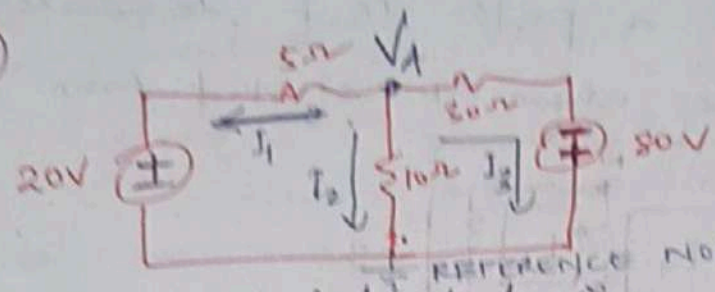 )
5Ω VA
50Ω
20V I₁ I₂ 10Ω I₃ 50V
REFERENCE NO